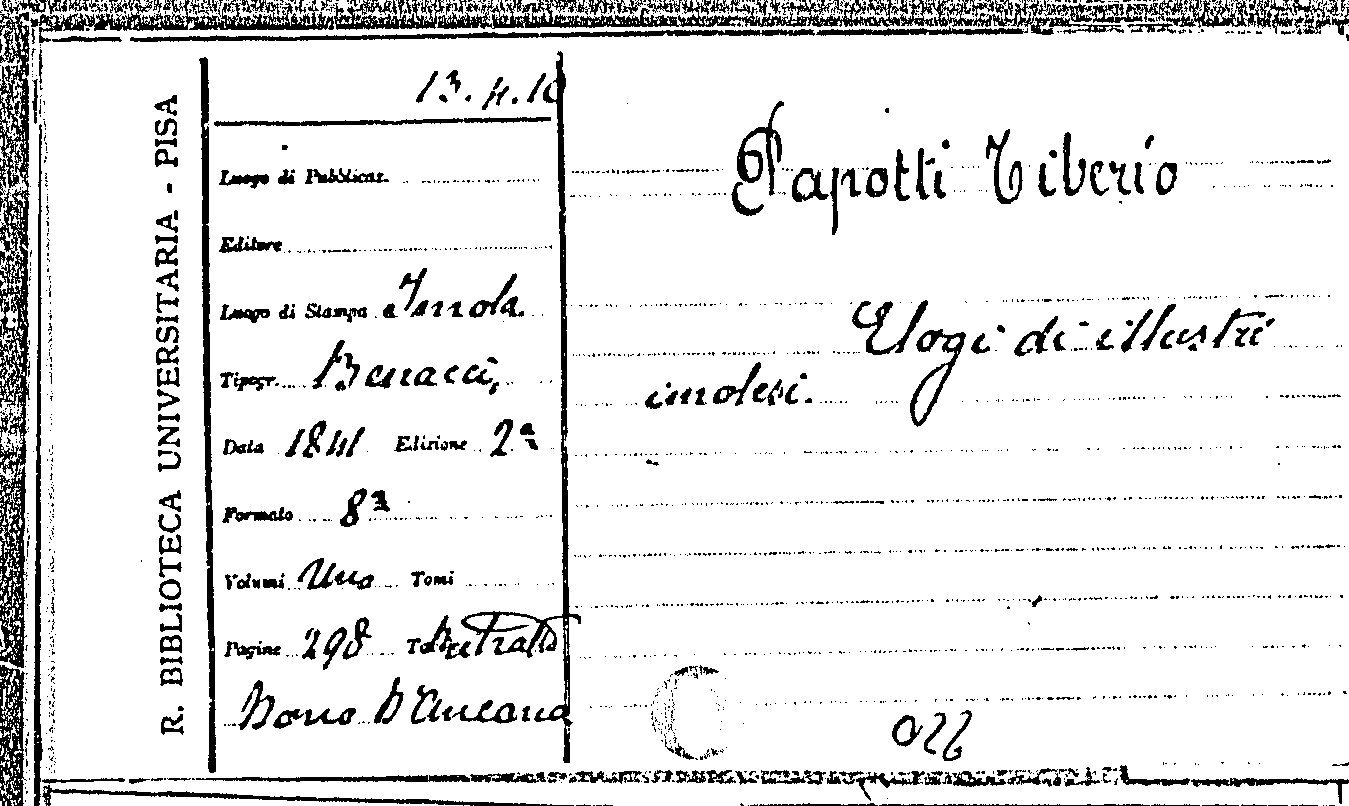 R. BIBLIOTECA UNIVERSITARIA - PISA
13.4.10
Luogo di Pubblicaz.
Editore
Luogo di Stampa Imola
Tipogr. Benacci,
Data 1841 Edizione 2ª
Formato 8º
Volumi Uno Tomi
Pagine 298 Ritratto
Dono D'Ancona
Papotti Tiberio
Elogi di illustri
imolesi.